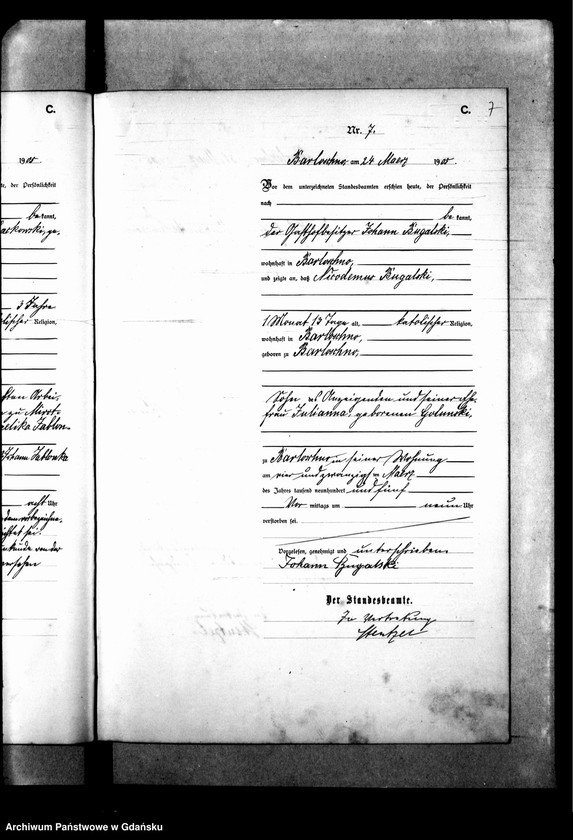 C.
1905.
te, der Persönlichkeit
be kannt,
3 Jahre
Religion,
acht Uhr
C. 7
Nr. 7.
Barloschno am 24 Maerz 1905.
Vor dem unterzeichneten Standesbeamten erschien heute, der Persönlichkeit
nach
be kannt,
der Gasthofbesitzer Johann Bugalski,
wohnhaft in Barloschno,
und zeigte an, daß Nicodemus Bugalski,
1 Monat 13 Tage alt, katolischer Religion,
wohnhaft in Barloschno,
geboren zu Barloschno,
Sohn des Anzeigenden und seiner Ehe-
frau Julianna geborenen Golunski,
zu Barloschno in seiner Wohnung
am vier und zwanzigsten Maerz
des Jahres tausend neunhundert und fünf
Vor mittags um neun Uhr
verstorben sei.
Vorgelesen, genehmigt und unterschrieben
Johann Bugalski
Der Standesbeamte.
In Vertretung
Archiwum Państwowe w Gdańsku